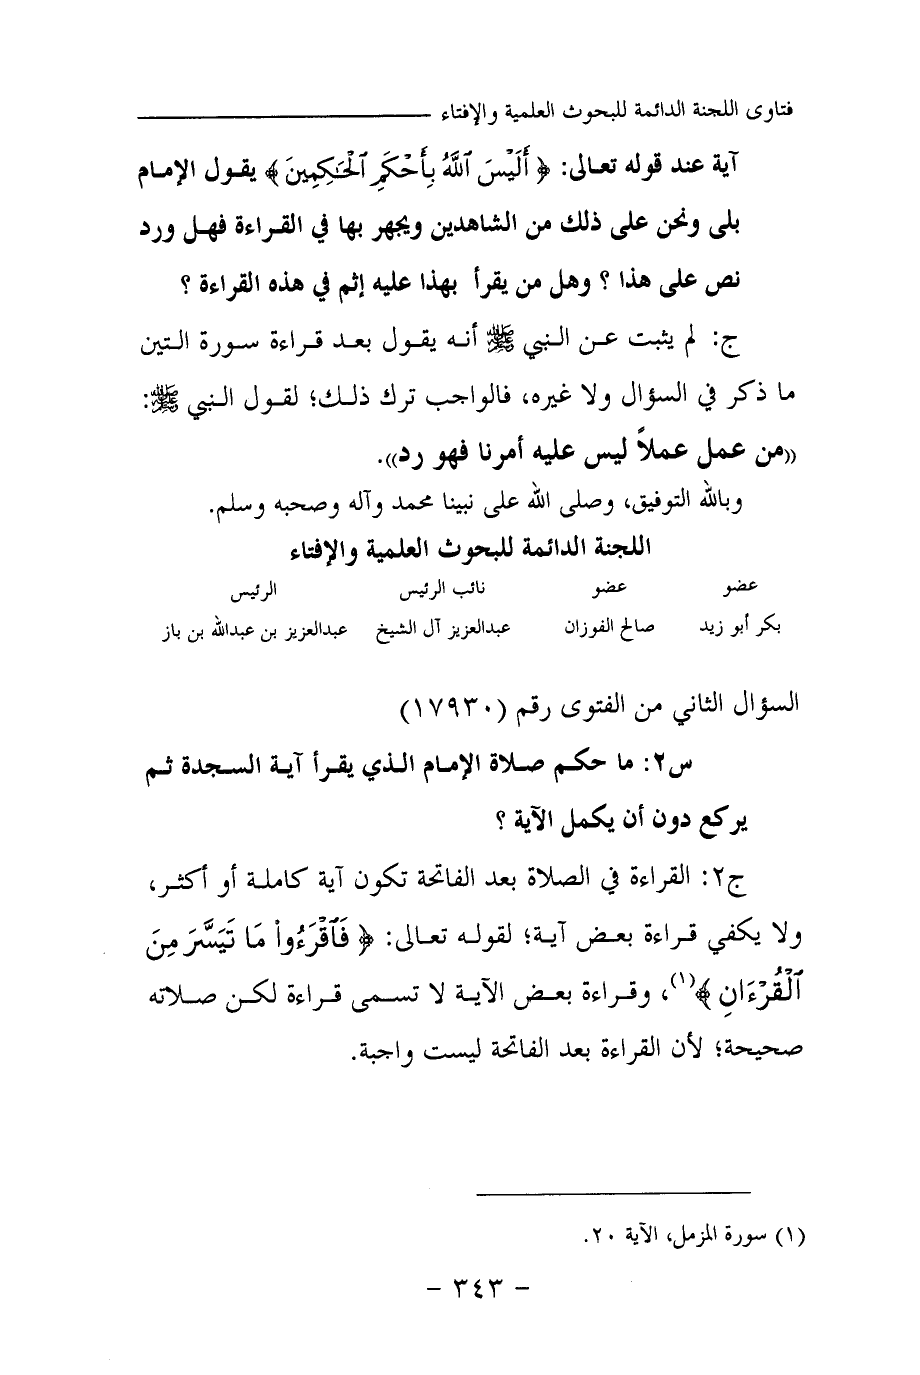 فتاوى اللجنة الدائمة للبحوث العلمية والإفتاء
آية عند قوله تعالى: ﴿ أَلَيْسَ ٱللَّهُ بِأَحْكَمِ ٱلْحَٰكِمِينَ ﴾ يقول الإمام
بلى ونحن على ذلك من الشاهدين ويجهر بها في القراءة فهل ورد
نص على هذا ؟ وهل من يقرأ بهذا عليه إثم في هذه القراءة ؟
ج: لم يثبت عن النبي ﷺ أنه يقول بعد قراءة سورة التين
ما ذكر في السؤال ولا غيره، فالواجب ترك ذلك؛ لقول النبي ﷺ:
((من عمل عملاً ليس عليه أمرنا فهو رد)).
وبالله التوفيق، وصلى الله على نبينا محمد وآله وصحبه وسلم.
اللجنة الدائمة للبحوث العلمية والإفتاء
عضو عضو نائب الرئيس الرئيس
بكر أبو زيد صالح الفوزان عبدالعزيز آل الشيخ عبدالعزيز بن عبدالله بن باز
السؤال الثاني من الفتوى رقم (١٧٩٣٠)
س٢: ما حكم صلاة الإمام الذي يقرأ آية السجدة ثم
يركع دون أن يكمل الآية ؟
ج٢: القراءة في الصلاة بعد الفاتحة تكون آية كاملة أو أكثر،
ولا يكفي قراءة بعض آية؛ لقوله تعالى: ﴿ فَٱقْرَءُوا۟ مَا تَيَسَّرَ مِنَ
ٱلْقُرْءَانِ ﴾(١)، وقراءة بعض الآية لا تسمى قراءة لكن صلاته
صحيحة؛ لأن القراءة بعد الفاتحة ليست واجبة.
(١) سورة المزمل، الآية ٢٠.
- ٣٤٣ -